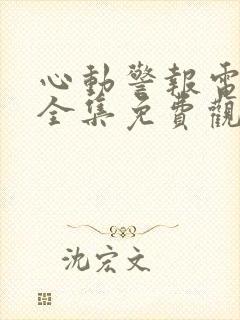 心動警報電
全集免費觀
沈宏文